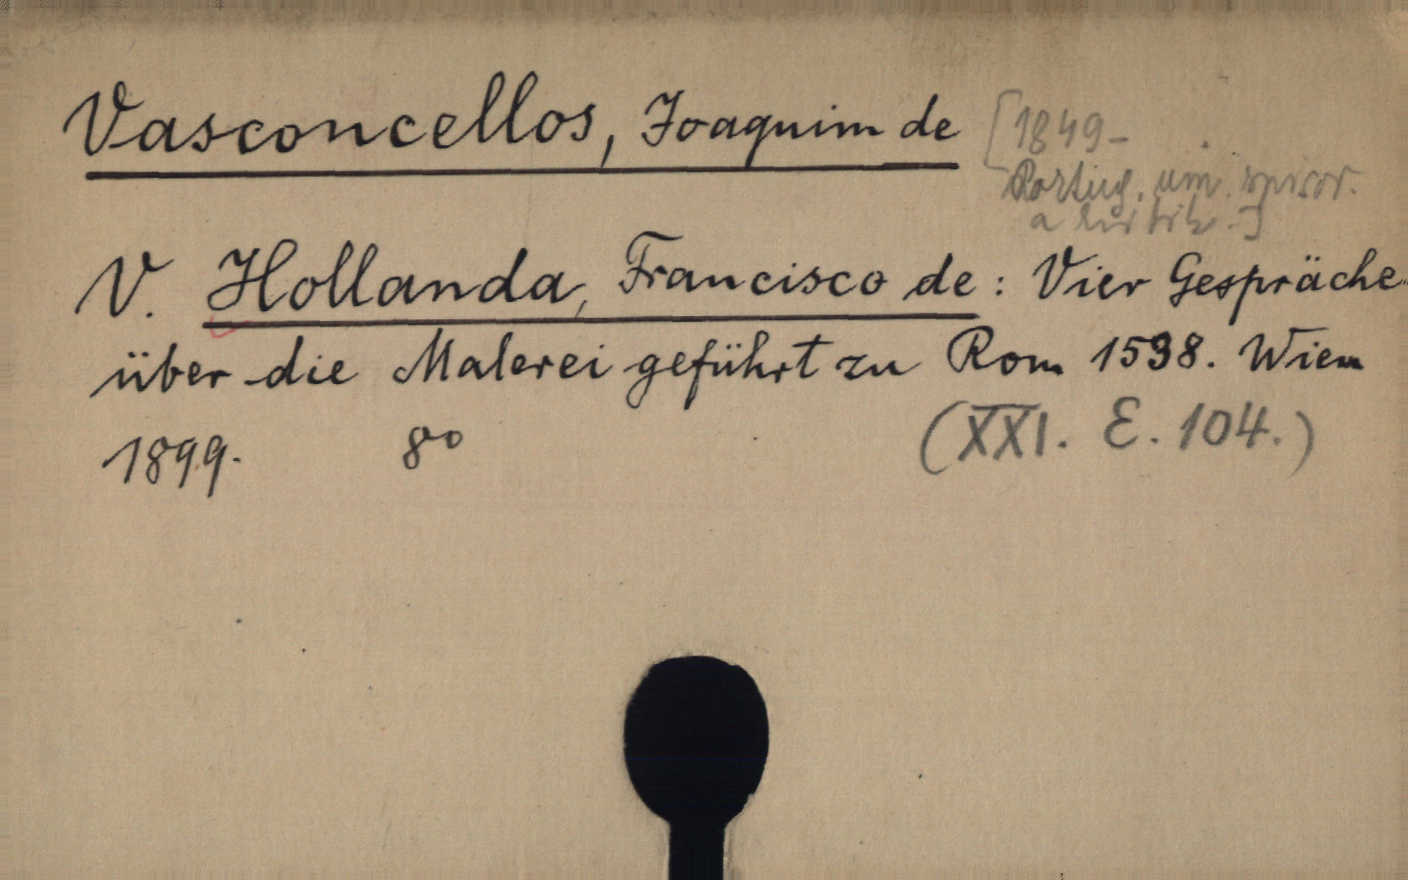 Vasconcellos, Joaquim de [1849-
Portug. um. spisov.
a kritik.]
V. Hollanda, Francisco de: Vier Gespräche
über die Malerei geführt zu Rom 1538. Wien
1899. 8°
(XXI. E. 104.)